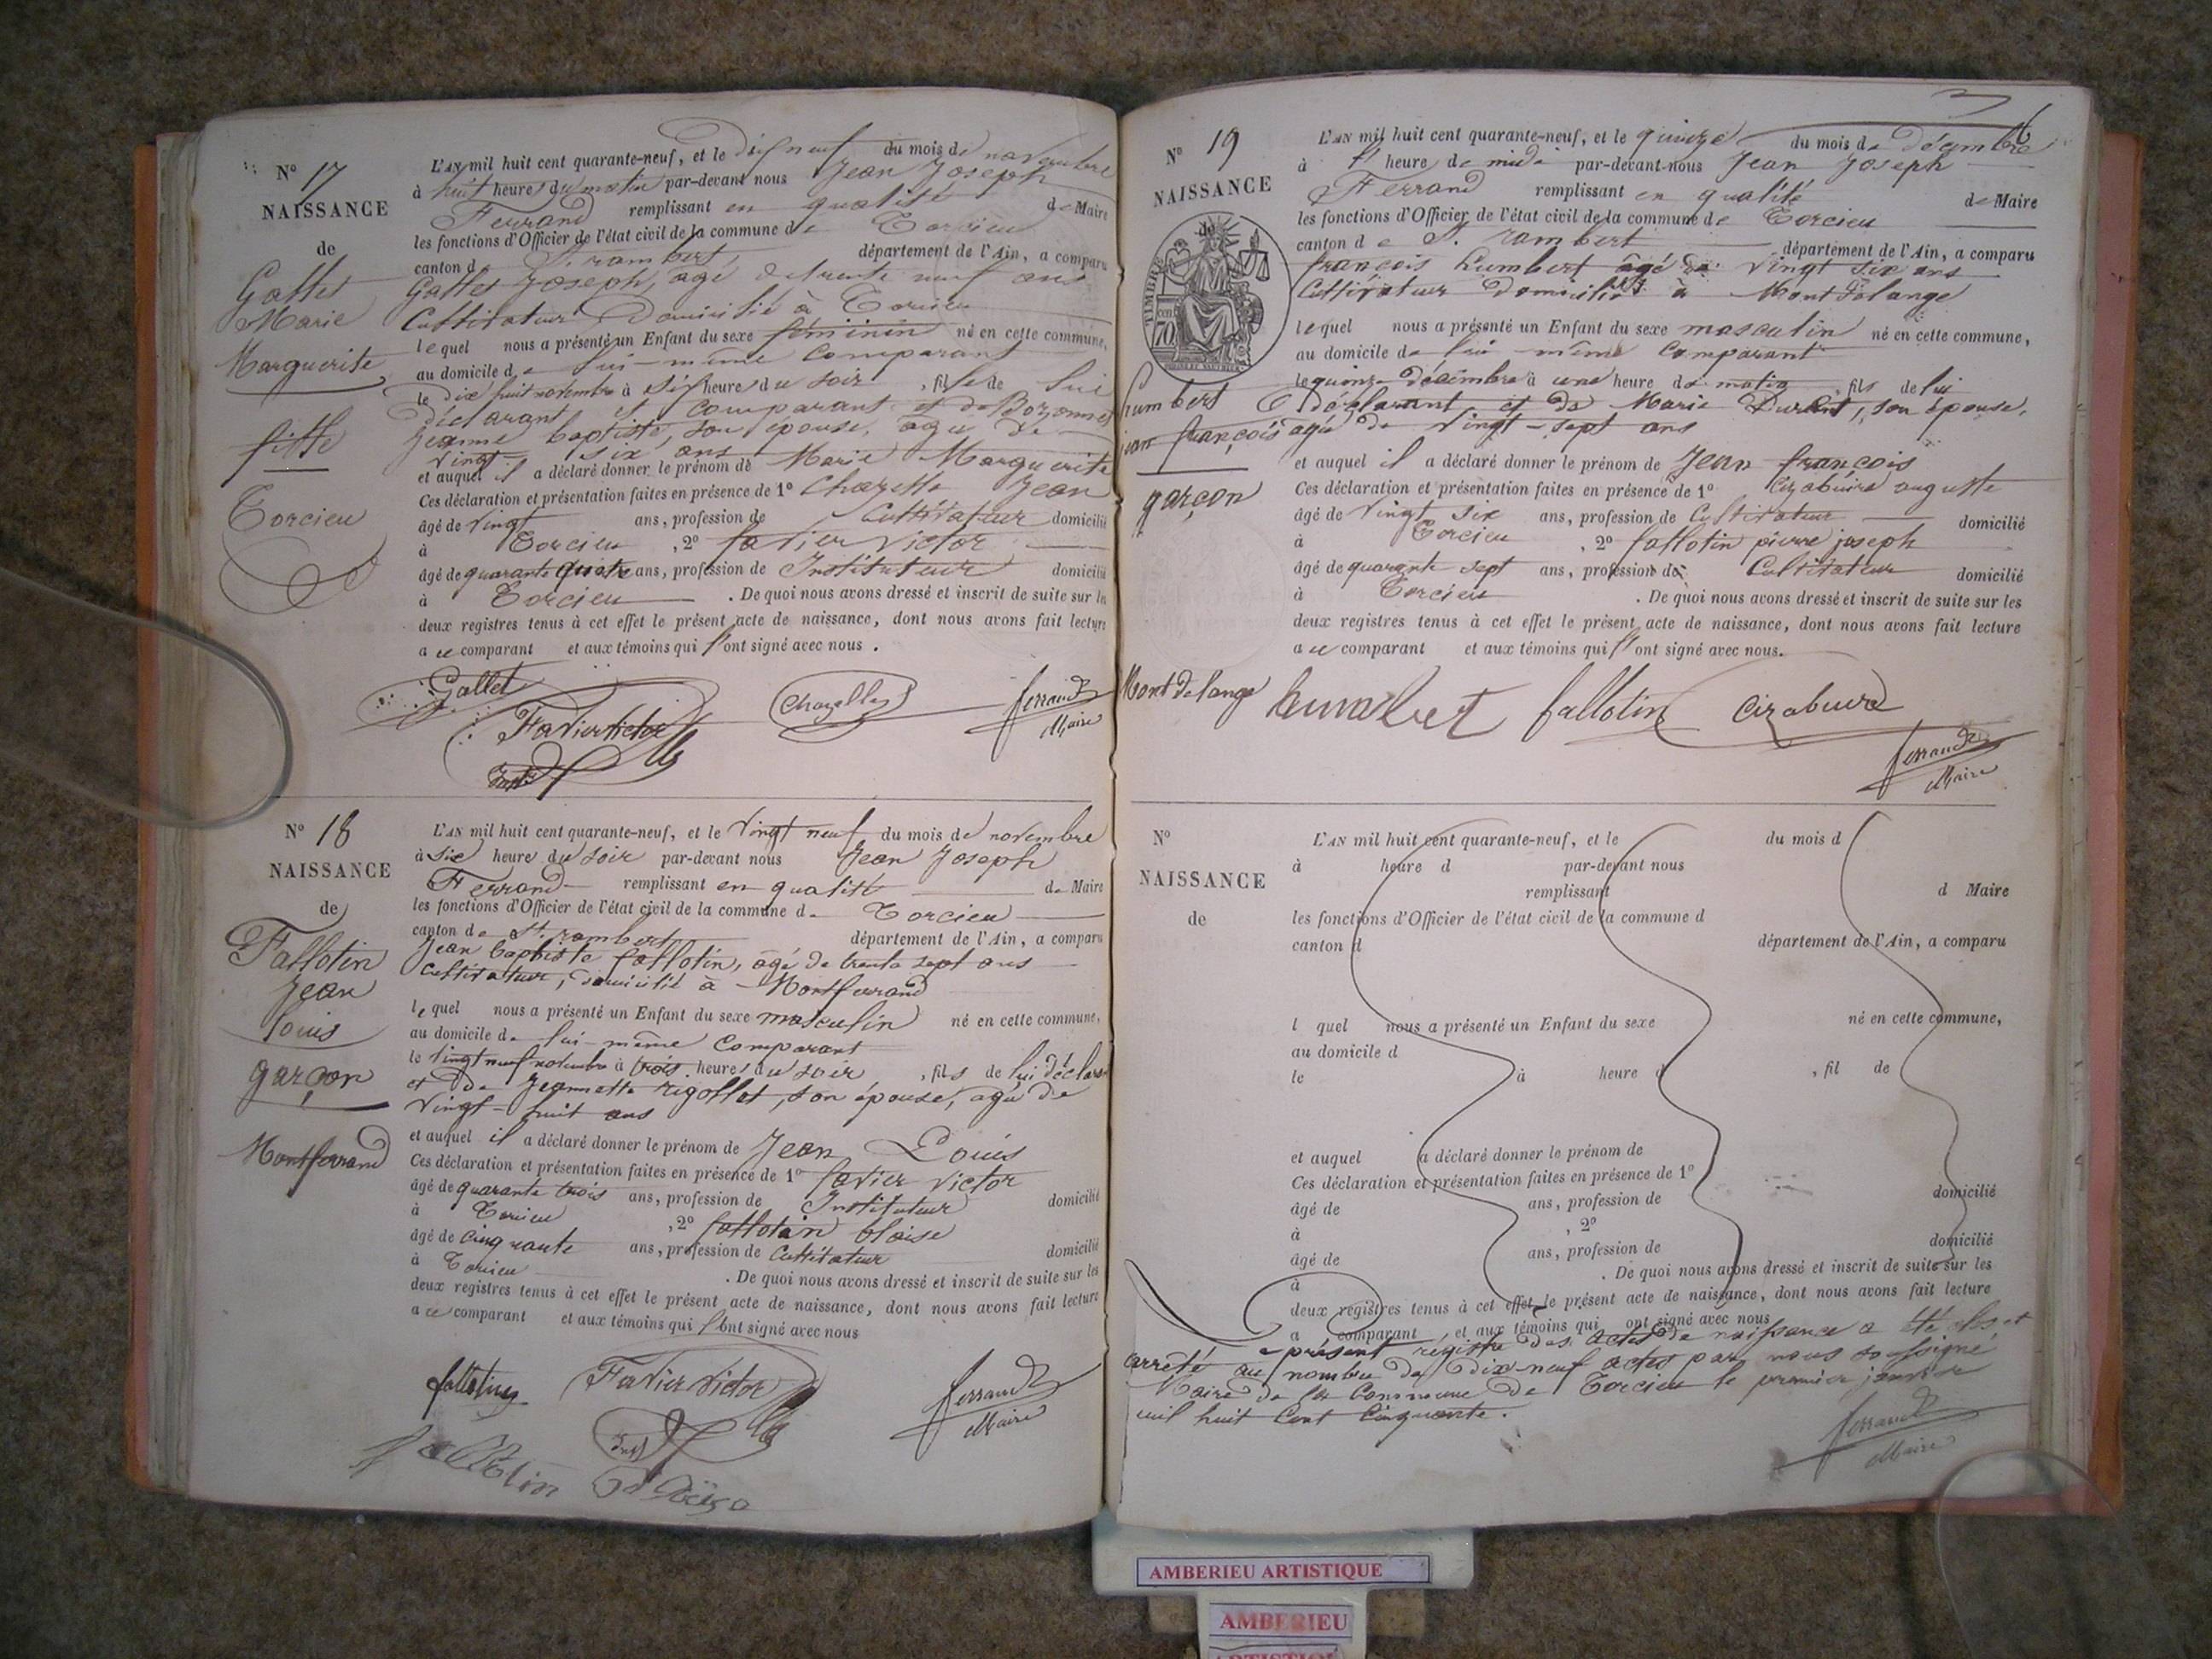 N° 17
NAISSANCE
de
Gallet
Marie
Marguerite
fille
Torcieu
L'AN mil huit cent quarante-neuf, et le dix neuf du mois de novembre
à huit heures du matin par-devant nous Jean Joseph
Ferrand remplissant en qualité de Maire
les fonctions d'Officier de l'état civil de la commune de Torcieu
canton d St. rambert, département de l'Ain, a comparu
Gallet Joseph, agé de trente neuf ans
Cultivateur Domicilié à Torcieu
lequel nous a présenté un Enfant du sexe féminin né en cette commune,
au domicile de lui-même Comparant
le dix huit novembre à six heures du soir, fille de lui
déclarant et comparant et de Bozonnet
Jeanne baptiste, son épouse, agée de
Vingt-six ans
et auquel il a déclaré donner le prénom de Marie Marguerite
Ces déclaration et présentation faites en présence de 1° Chazelle Jean
âgé de Vingt ans, profession de Cultivateur domicilié
à Torcieu, 2° favier Victor
âgé de quarante quatre ans, profession de Instituteur domicilié
à Torcieu. De quoi nous avons dressé et inscrit de suite sur les
deux registres tenus à cet effet le présent acte de naissance, dont nous avons fait lecture
a ce comparant et aux témoins qui l'ont signé avec nous.
Gallet
Favier Victor
Chazelles
ferrand
Maire
N° 18
NAISSANCE
de
Fallotin
Jean
louis
garçon
Montferrand
L'AN mil huit cent quarante-neuf, et le Vingt neuf du mois de novembre
à six heure du soir par-devant nous Jean Joseph
Ferrand remplissant en qualité de Maire
les fonctions d'Officier de l'état civil de la commune de Torcieu
canton de St. rambert département de l'Ain, a comparu
Jean baptiste fallotin, agé de trente sept ans
Cultivateur, domicilié à Montferrand
lequel nous a présenté un Enfant du sexe masculin né en cette commune,
au domicile de lui-même Comparant
le Vingt neuf novembre à trois heures du soir, fils de lui déclarant
et de Jeannette rigollet, son épouse, agée de
Vingt-huit ans
et auquel il a déclaré donner le prénom de Jean Louis
Ces déclaration et présentation faites en présence de 1° favier Victor
âgé de quarante trois ans, profession de Instituteur domicilié
à Torcieu, 2° fallotin blaise
âgé de Cinquante ans, profession de Cultivateur domicilié
à Torcieu. De quoi nous avons dressé et inscrit de suite sur les
deux registres tenus à cet effet le présent acte de naissance, dont nous avons fait lecture
a ce comparant et aux témoins qui l'ont signé avec nous
fallotin
Favier Victor
ferrand
Maire
fallotin
N° 19
NAISSANCE
de
TIMBRE
70
humbert
jean françois
garçon
Mont de lange
L'AN mil huit cent quarante-neuf, et le quinze du mois de décembre
à heure de midi par-devant-nous Jean Joseph
Ferrand remplissant en qualité de Maire
les fonctions d'Officier de l'état civil de la commune de Torcieu
canton de St. rambert département de l'Ain, a comparu
françois humbert âgé de Vingt six ans
Cultivateur domicilié à Mont de lange
lequel nous a présenté un Enfant du sexe masculin né en cette commune,
au domicile de lui-même Comparant
le quinze décembre à une heure du matin, fils de lui
déclarant et de Marie Durant, son épouse,
agée de Vingt-sept ans
et auquel il a déclaré donner le prénom de Jean françois
Ces déclaration et présentation faites en présence de 1° Cizabuire auguste
âgé de Vingt six ans, profession de Cultivateur domicilié
à Torcieu, 2° fallotin pierre joseph
âgé de quarante sept ans, profession de Cultivateur domicilié
à Torcieu. De quoi nous avons dressé et inscrit de suite sur les
deux registres tenus à cet effet le présent acte de naissance, dont nous avons fait lecture
a ce comparant et aux témoins qui l'ont signé avec nous.
humbert
fallotin
Cizabuire
ferrand
Maire
N°
NAISSANCE
de
L'AN mil huit cent quarante-neuf, et le du mois d
à heure d par-devant nous
remplissant d Maire
les fonctions d'Officier de l'état civil de la commune d
canton d département de l'Ain, a comparu
l quel nous a présenté un Enfant du sexe né en cette commune,
au domicile d
le à heure d, fil de
et auquel a déclaré donner le prénom de
Ces déclaration et présentation faites en présence de 1°
âgé de ans, profession de domicilié
à, 2°
âgé de ans, profession de domicilié
à. De quoi nous avons dressé et inscrit de suite sur les
deux registres tenus à cet effet le présent acte de naissance, dont nous avons fait lecture
a comparant, et aux témoins qui ont signé avec nous
Le présent registre des actes de naissance a été clos et
arrêté au nombre de dix-neuf actes par nous soussigné
Maire de la Commune de Torcieu le premier janvier
mil huit Cent Cinquante.
ferrand
Maire
AMBERIEU ARTISTIQUE
AMBERIEU
ARTISTIQUE